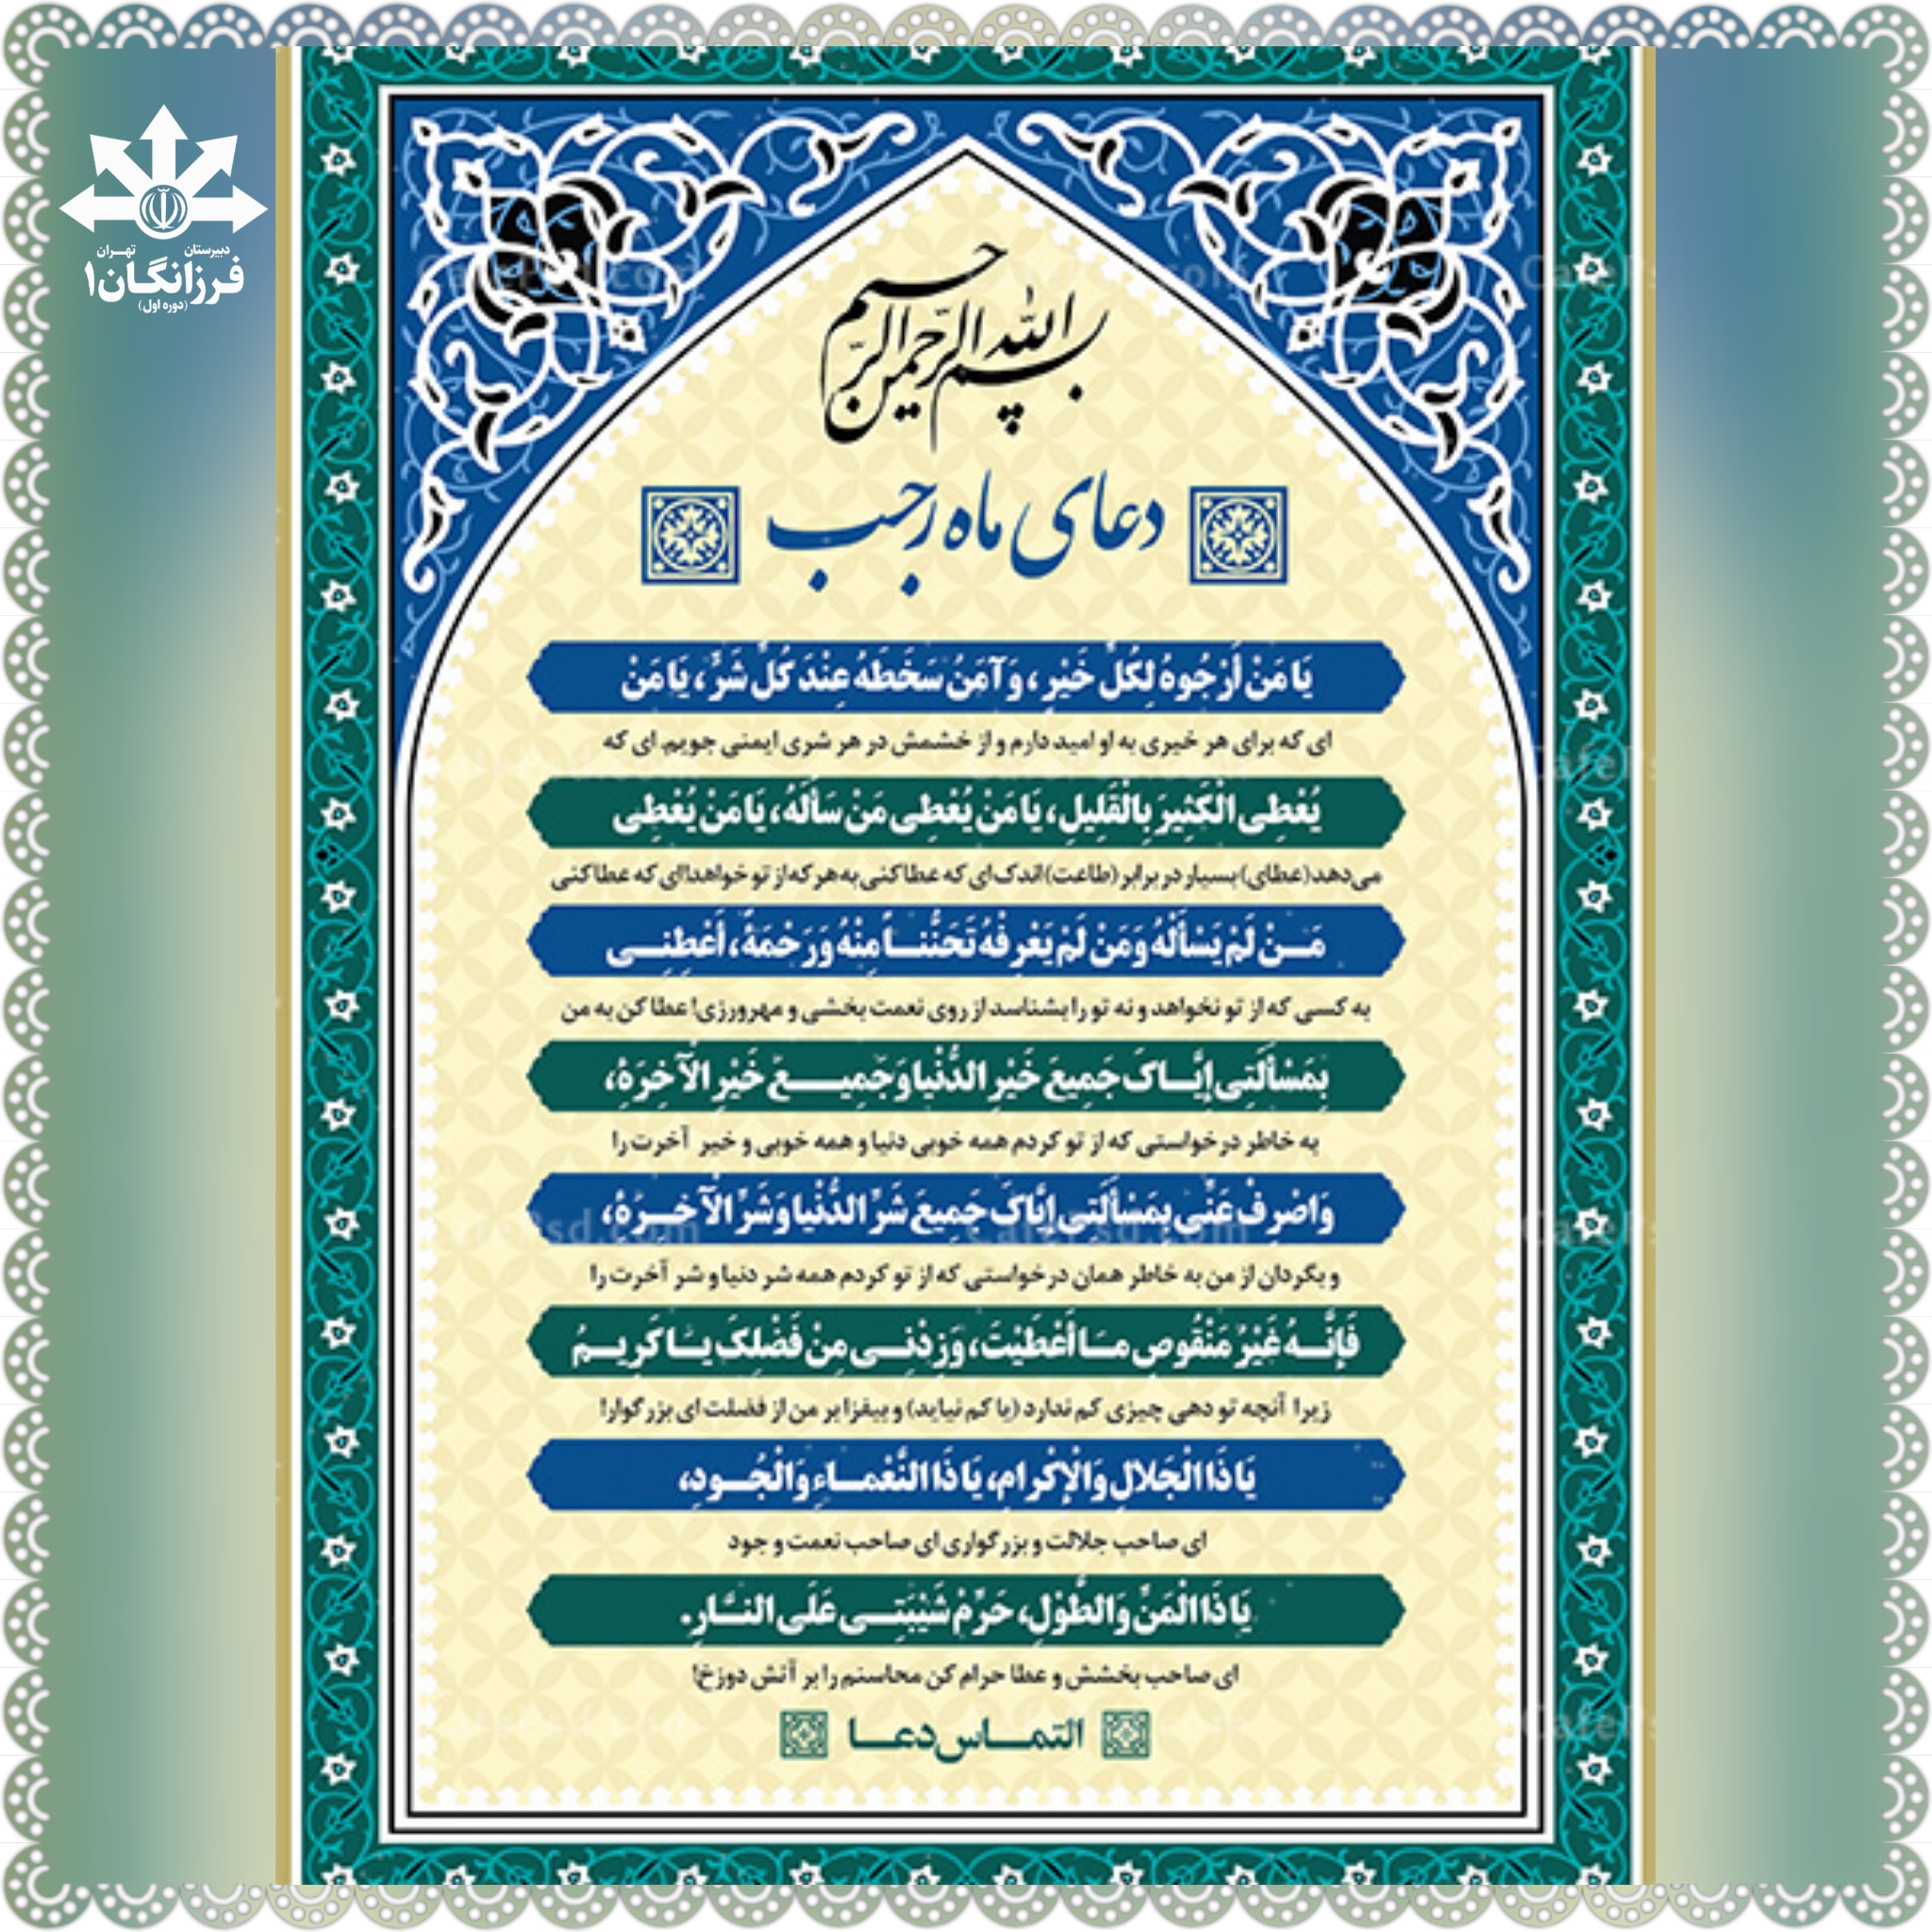 دبیرستان تهران
فرزانگان۱
(دوره اول)
بسم الله الرحمن الرحیم
دعای ماه رجب
يَا مَنْ أَرْجُوهُ لِكُلِّ خَيْرٍ، وَآمَنُ سَخَطَهُ عِنْدَ كُلِّ شَرٍّ، يَا مَنْ
ای که برای هر خیری به او امید دارم و از خشمش در هر شری ایمنی جویم. ای که
يُعْطِی الْكَثِيرَ بِالْقَلِيلِ، يَا مَنْ يُعْطِی مَنْ سَأَلَهُ، يَا مَنْ يُعْطِی
می‌دهد (عطای) بسیار در برابر (طاعت) اندک ای که عطا کنی به هر که از تو خواهد! ای که عطا کنی
مَـنْ لَمْ يَسْأَلْهُ وَمَنْ لَمْ يَعْرِفْهُ تَحَنُّنـاً مِنْهُ وَرَحْمَةً، أَعْطِنِـی
به کسی که از تو نخواهد و نه تو را بشناسد از روی نعمت بخشی و مهرورزی! عطا کن به من
بِمَسْأَلَتِی إِيَّـاکَ جَمِيعَ خَيْرِ الدُّنْيَا وَجَمِيـعَ خَيْرِ الْآخِرَةِ،
به خاطر درخواستی که از تو کردم همه خوبی دنیا و همه خوبی و خیر آخرت را
وَاصْرِفْ عَنِّی بِمَسْأَلَتِی إِيَّاکَ جَمِيعَ شَرِّ الدُّنْيَا وَشَرِّ الْآخِـرَةِ،
و بگردان از من به خاطر همان درخواستی که از تو کردم همه شر دنیا و شر آخرت را
فَإِنَّـهُ غَيْرُ مَنْقُوصٍ مَـا أَعْطَيْتَ، وَزِدْنِـی مِنْ فَضْلِکَ يَـا كَرِيـمُ
زیرا آنچه تو دهی چیزی کم ندارد (یا کم نیاید) و بیفزا بر من از فضلت ای بزرگوار!
يَا ذَا الْجَلالِ وَالْإِكْرامِ، يَا ذَا النَّعْمـاءِ وَالْجُـودِ،
ای صاحب جلالت و بزرگواری ای صاحب نعمت و جود
يَا ذَا الْمَنِّ وَالطَّوْلِ، حَرِّمْ شَيْبَتِـی عَلَی النـَّارِ.
ای صاحب بخشش و عطا حرام کن محاسنم را بر آتش دوزخ!
التمـاس دعـا